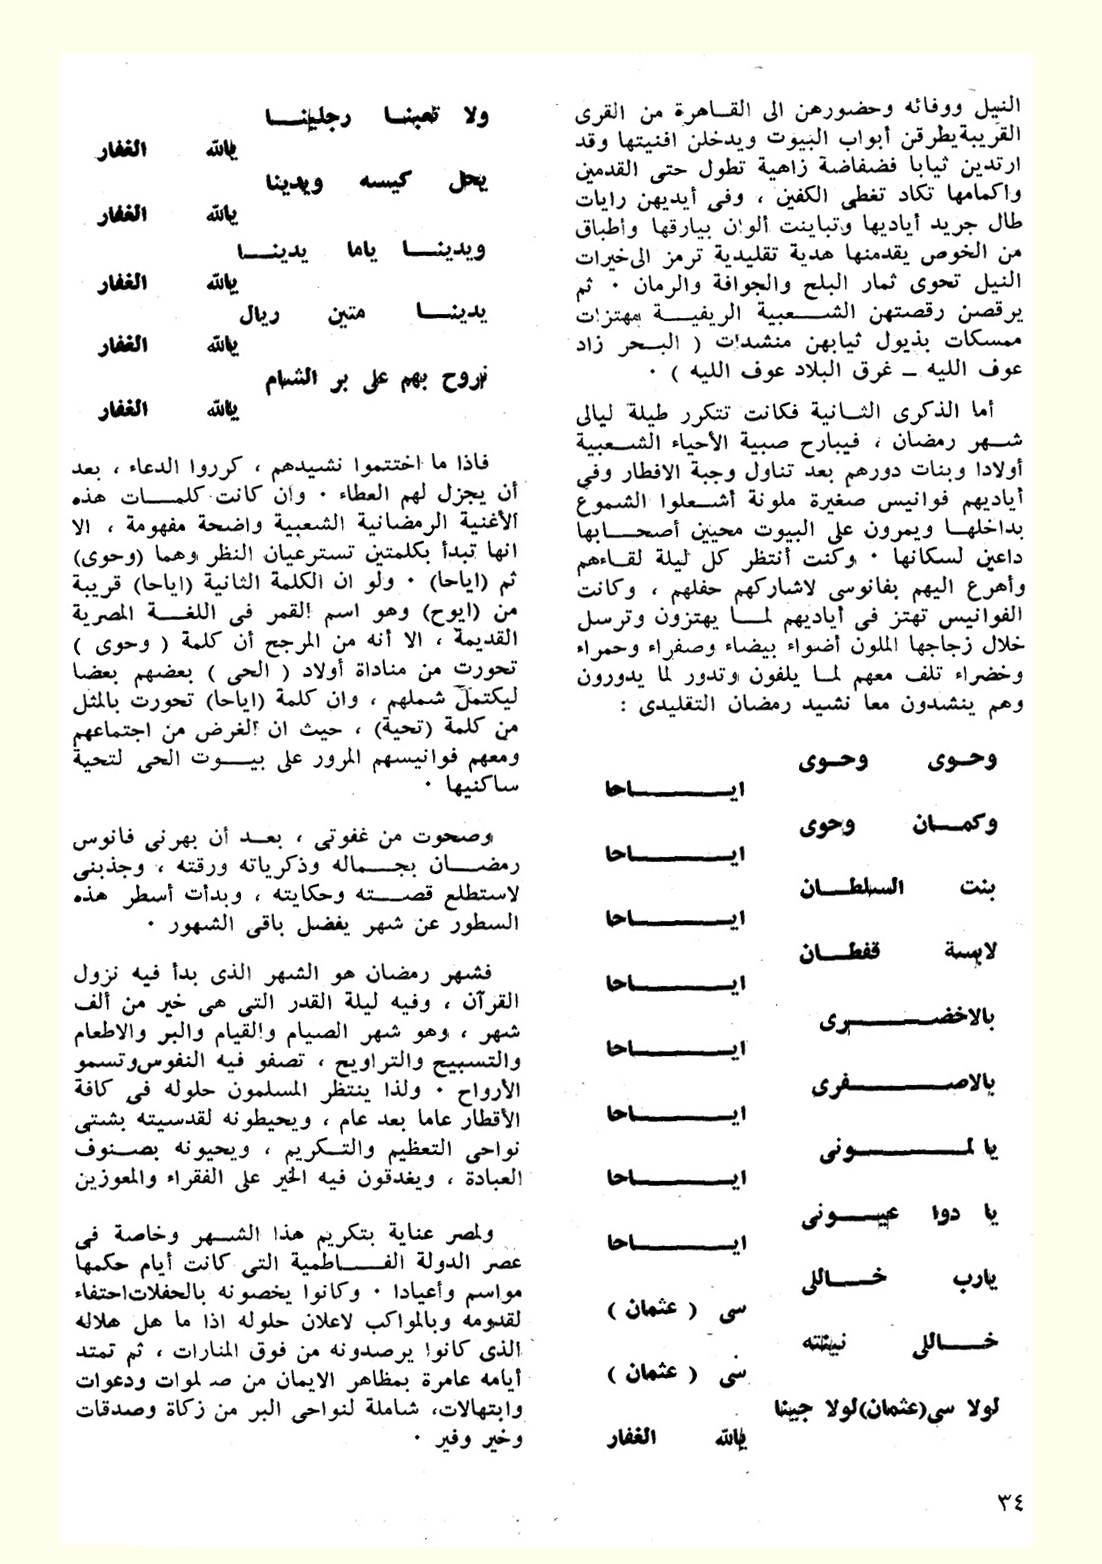 النيل ووفائه وحضورهن الى القاهرة من القرى
القريبة يطرقن أبواب البيوت ويدخلن افنيتها وقد
ارتدين ثيابا فضفاضة زاهية تطول حتى القدمين
واكمامها تكاد تغطى الكفين ، وفى أيديهن رايات
طال جريد أياديها وتباينت ألوان بيارقها وأطباق
من الخوص يقدمنها هدية تقليدية ترمز الى خيرات
النيل تحوى ثمار البلح والجوافة والرمان ٠ ثم
يرقصن رقصتهن الشعبية الريفية مهتزات
ممسكات بذيول ثيابهن منشدات ( البحر زاد
عوف الليه ــ غرق البلاد عوف الليه ) ٠
أما الذكرى الثانية فكانت تتكرر طيلة ليالى
شهر رمضان ، فيبارح صبية الأحياء الشعبية
أولادا وبنات دورهم بعد تناول وجبة الافطار وفي
أياديهم فوانيس صغيرة ملونة أشعلوا الشموع
بداخلها ويمرون على البيوت محيين أصحابها
داعين لسكانها ٠ وكنت أنتظر كل ليلة لقاءهم
وأهرع اليهم بفانوسى لاشاركهم حفلهم ، وكانت
الفوانيس تهتز فى أياديهم لما يهتزون وترسل
خلال زجاجها الملون أضواء بيضاء وصفراء وحمراء
وخضراء تلف معهم لما يلفون وتدور لما يدورون
وهم ينشدون معا نشيد رمضان التقليدى :
وحوى وحوى
ايـــاحا
وكمان وحوى
ايـــاحا
بنت السلطان
ايـــاحا
لابسة قفطان
ايـــاحا
بالاخضرى
ايـــاحا
بالاصفرى
ايـــاحا
يا لمونى
ايـــاحا
يا دوا عيونى
ايـــاحا
يارب خالى
سى ( عثمان )
خالى نينته
سى ( عثمان )
لولا سى (عثمان) لولا جينا
يالله الغفار
ولا تعبنا رجلينا
يالله الغفار
يحل كيسه ويدينا
يالله الغفار
ويدينا ياما يدينا
يالله الغفار
يدينا متين ريال
يالله الغفار
نروح بهم على بر الشام
يالله الغفار
فاذا ما اختتموا نشيدهم ، كرروا الدعاء ، بعد
أن يجزل لهم العطاء ٠ وان كانت كلمات هذه
الأغنية الرمضانية الشعبية واضحة مفهومة ، الا
انها تبدأ بكلمتين تسترعيان النظر وهما (وحوى)
ثم (اياحا) ٠ ولو ان الكلمة الثانية (اياحا) قريبة
من (ايوح) وهو اسم القمر فى اللغة المصرية
القديمة ، الا أنه من المرجح أن كلمة ( وحوى )
تحورت من مناداة أولاد ( الحى ) بعضهم بعضا
ليكتمل شملهم ، وان كلمة (اياحا) تحورت بالمثل
من كلمة (تحية) ، حيث ان الغرض من اجتماعهم
ومعهم فوانيسهم المرور على بيوت الحى لتحية
ساكنيها ٠
وصحوت من غفوتى ، بعد أن بهرنى فانوس
رمضان بجماله وذكرياته ورقته ، وجذبنى
لاستطلع قصته وحكايته ، وبدأت أسطر هذه
السطور عن شهر يفضل باقى الشهور ٠
فشهر رمضان هو الشهر الذى بدأ فيه نزول
القرآن ، وفيه ليلة القدر التى هى خير من ألف
شهر ، وهو شهر الصيام والقيام والبر والاطعام
والتسبيح والتراويح ، تصفو فيه النفوس وتسمو
الأرواح ٠ ولذا ينتظر المسلمون حلوله فى كافة
الأقطار عاما بعد عام ، ويحيطونه لقدسيته بشتى
نواحى التعظيم والتكريم ، ويحيونه بصنوف
العبادة ، ويغدقون فيه الخير على الفقراء والمعوزين
ولمصر عناية بتكريم هذا الشهر وخاصة فى
عصر الدولة الفاطمية التى كانت أيام حكمها
مواسم وأعيادا ٠ وكانوا يخصونه بالحفلات احتفاء
لقدومه وبالمواكب لاعلان حلوله اذا ما هل هلاله
الذى كانوا يرصدونه من فوق المنارات ، ثم تمتد
أيامه عامرة بمظاهر الايمان من صلوات ودعوات
وابتهالات، شاملة لنواحى البر من زكاة وصدقات
وخير وفير ٠
٣٤